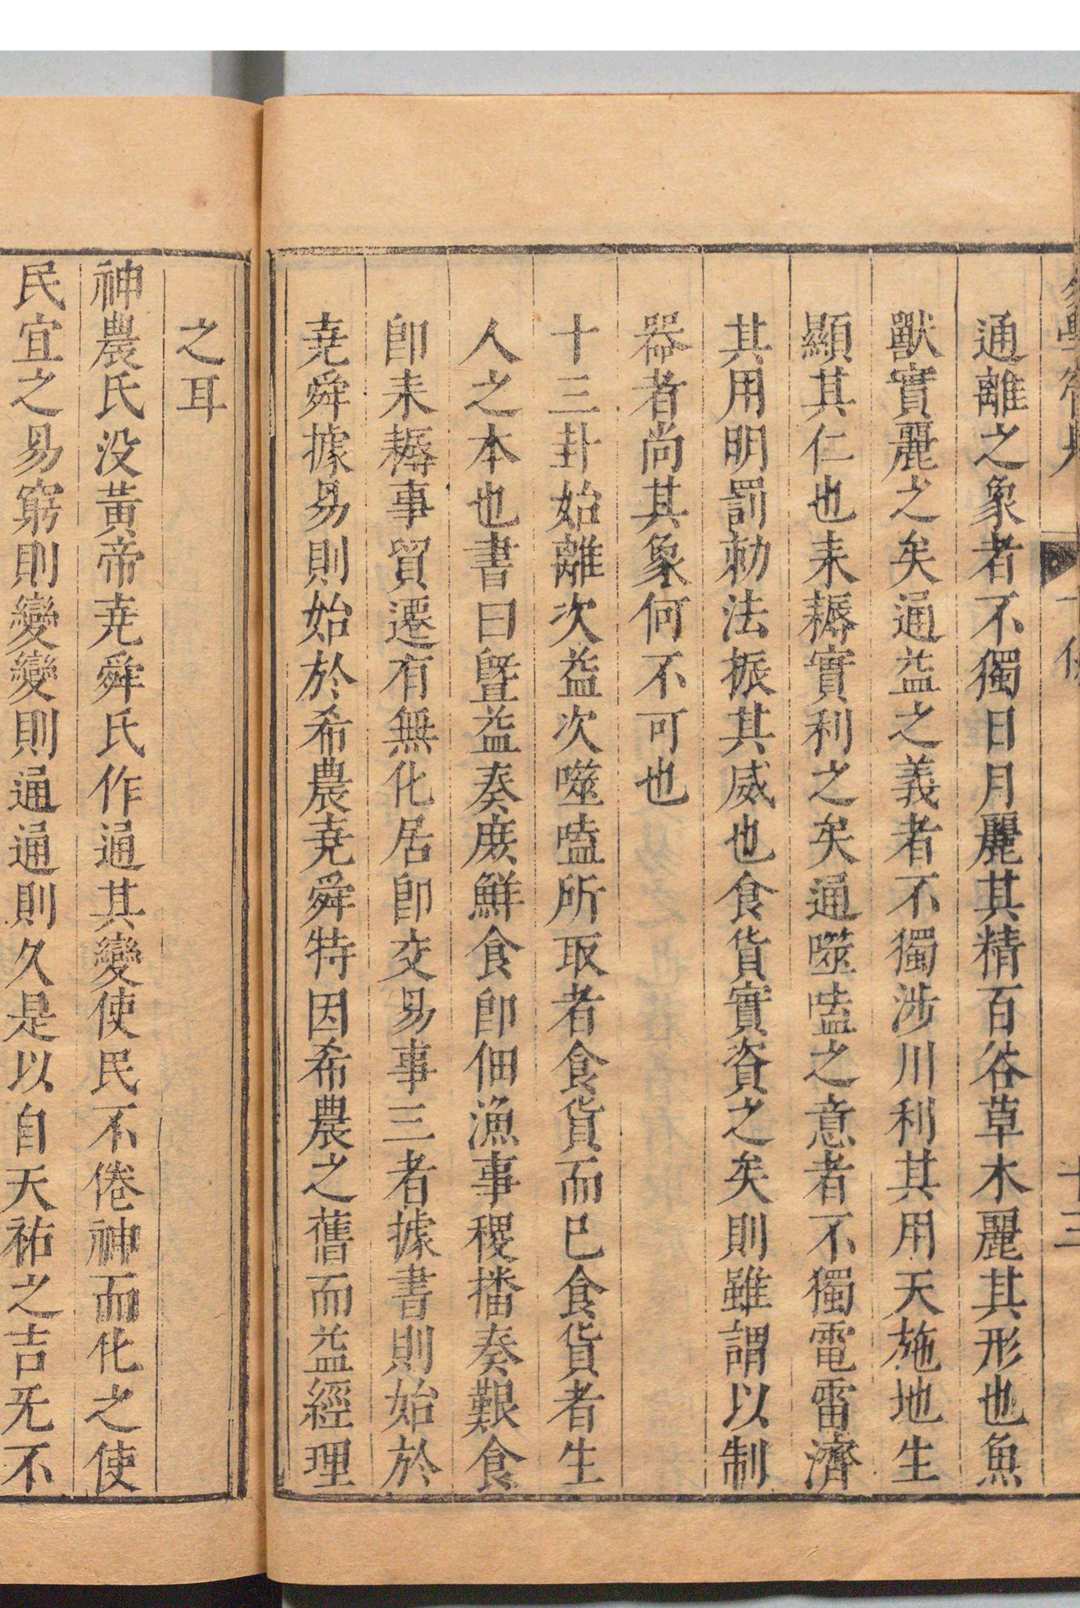 通離之象者不獨日月麗其精百谷草木麗其形也魚
獸實麗之矣通益之義者不獨涉川利其用天施地生
顯其仁也耒耨實利之矣通噬嗑之意者不獨電雷濟
其用明罰勅法振其威也食貨實資之矣則雖謂以制
器者尚其象何不可也
十三卦始離次益次噬嗑所取者食貨而已食貨者生
人之本也書曰曁益奏庶鮮食卽佃漁事稷播奏艱食
卽耒耨事貿遷有無化居卽交易事三者據書則始於
尭舜據易則始於希農尭舜特因希農之舊而益經理
之耳
神農氏没黃帝尭舜氏作通其變使民不倦神而化之使
民宜之易窮則變變則通通則久是以自天祐之吉无不